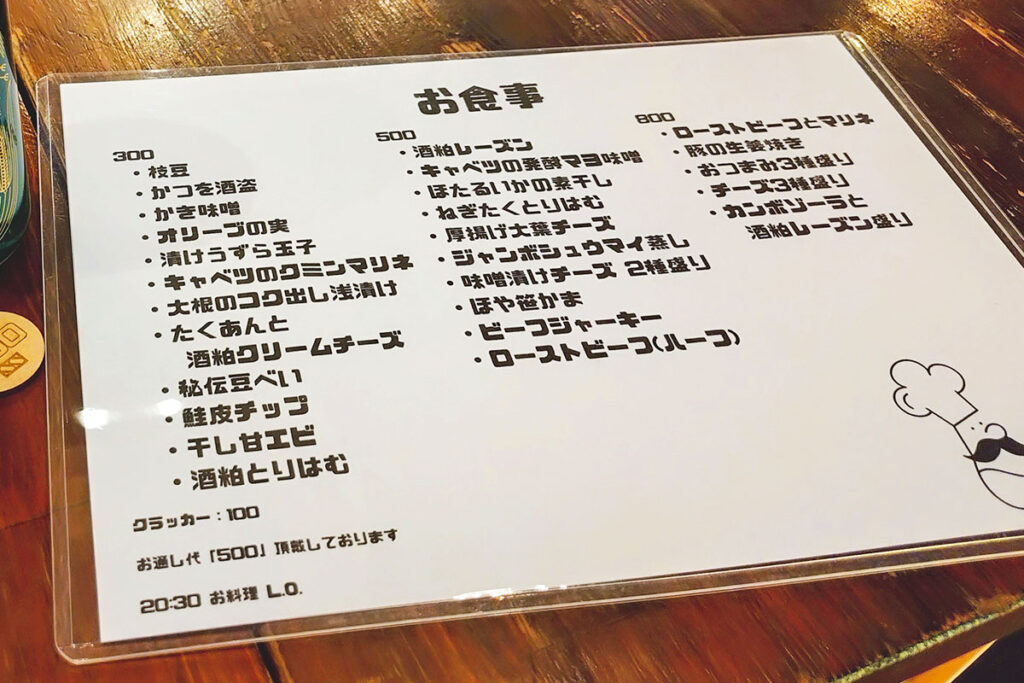 お食事
300
・枝豆
・かつを酒盗
・かき味噌
・オリーブの実
・漬けうずら玉子
・キャベツのクミンマリネ
・大根のコク出し浅漬け
・たくあんと
酒粕クリームチーズ
・秘伝豆べい
・鮭皮チップ
・干し甘エビ
・酒粕とりはむ
クラッカー：100
お通し代「500」頂戴しております
20:30 お料理 L.O.
500
・酒粕レーズン
・キャベツの発酵マヨ味噌
・ほたるいかの素干し
・ねぎたくとりはむ
・厚揚げ大葉チーズ
・ジャンボシュウマイ蒸し
・味噌漬けチーズ 2種盛り
・ほや笹かま
・ビーフジャーキー
・ローストビーフ(ハーフ)
800
・ローストビーフとマリネ
・豚の生姜焼き
・おつまみ3種盛り
・チーズ3種盛り
・カンボゾーラと
酒粕レーズン盛り